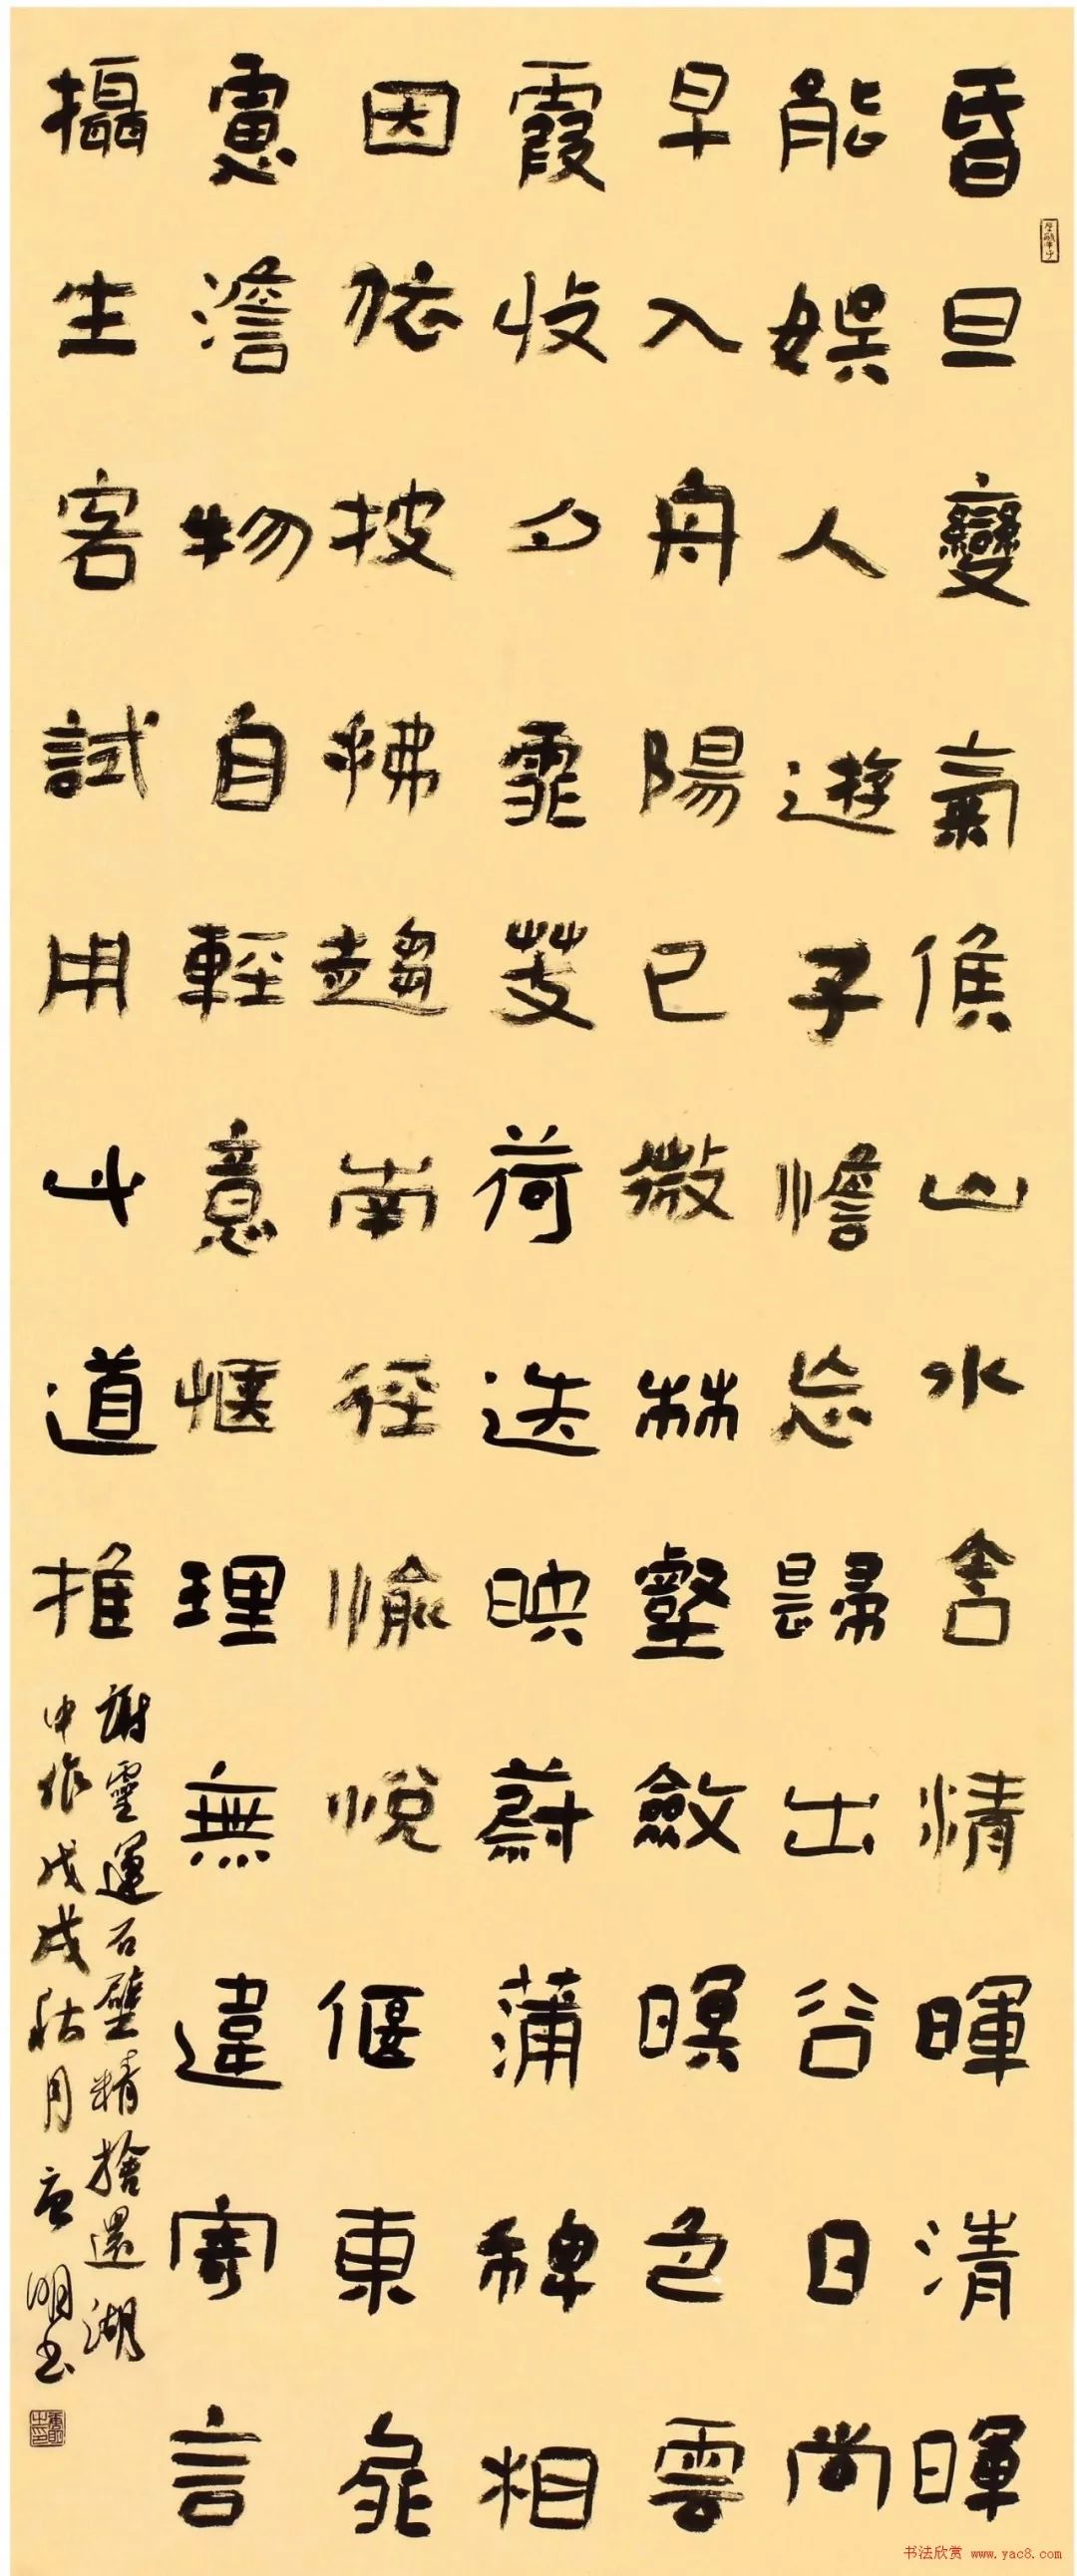 昏旦變氣候山水含精暉清暉
能娛人遊子憺忘歸出谷日尚
早入舟陽已微林壑斂暝色雲
霞收夕霏芰荷迭映蔚蒲稗相
因依披拂趨南徑愉悅偃東扉
慮澹物自輕意愜理無違寄言
攝生客試用此道推
謝靈運石壁精捨還湖
中作戊戌 月 明书
书法欣赏 www.yac8.com